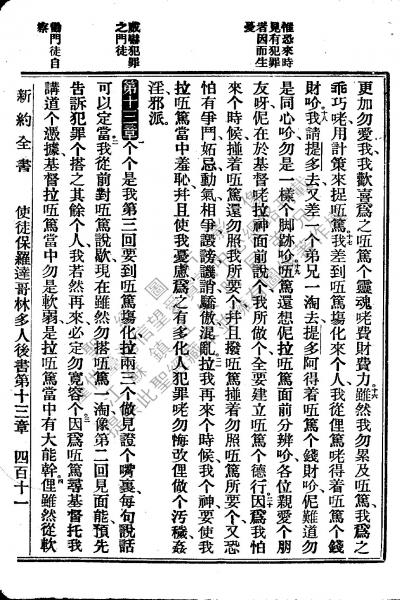 惟恐來時
見有犯罪
者因而生
憂
更加勿愛我我歡喜爲之㕶篤個靈魂咾費財費力雖然我勿累及㕶篤我爲之
乖巧咾用計策來捉㕶篤我差到㕶篤塲化來個人我從俚篤咾得着㕶篤個錢
財吤我請提多去又差一個弟兄一淘去提多阿得着㕶篤個錢財吤伲難道勿
是同心吤勿是一樣個脚跡吤㕶篤還想伲拉㕶篤面前分辨吤各位親愛個朋
友呀伲在於基督咾拉神面前說個我所做個全要建立㕶篤個德行因爲我怕
來個時候捱着㕶篤還勿照我所要個幷且撥㕶篤捱着勿照㕶篤所要個又恐
怕有爭鬥妬忌動氣相爭譭謗譏誚驕傲混亂拉我再來個時候我個神要使我
拉㕶篤當中羞恥幷且使我憂慮爲之有多化人犯罪咾勿悔改俚做個汚穢姦
淫邪派
威嚇犯罪
之門徒
第十三章 個個是我第三回要到㕶篤塲化拉兩三個做見證個嘴裏每句說話
可以定當我從前對㕶篤說歇現在雖然勿搭㕶篤一淘像第二回見面能預先
告訴犯罪個搭之其餘個人我若然再來必定勿寬容個因爲㕶篤尋基督托我
講道個憑據基督拉㕶篤當中勿是軟弱是拉㕶篤當中有大能幹俚雖然從軟
勸門徒自
察
新約全書 使徒保羅達哥林多人後書第十三章 四百十一